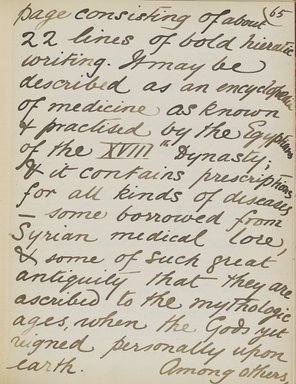 page consisting of about (65
22 lines of bold hieratic
writing. It may be
described as an encyclopedia
of medicine as known
& practised by the Egyptians
of the XVIIIth Dynasty;
& it contains prescriptions
for all kinds of diseases
– some borrowed from
Syrian medical lore,
& some of such great
antiquity that they are
ascribed to the mythologic
ages, when the Gods yet
reigned personally upon
earth. Among others